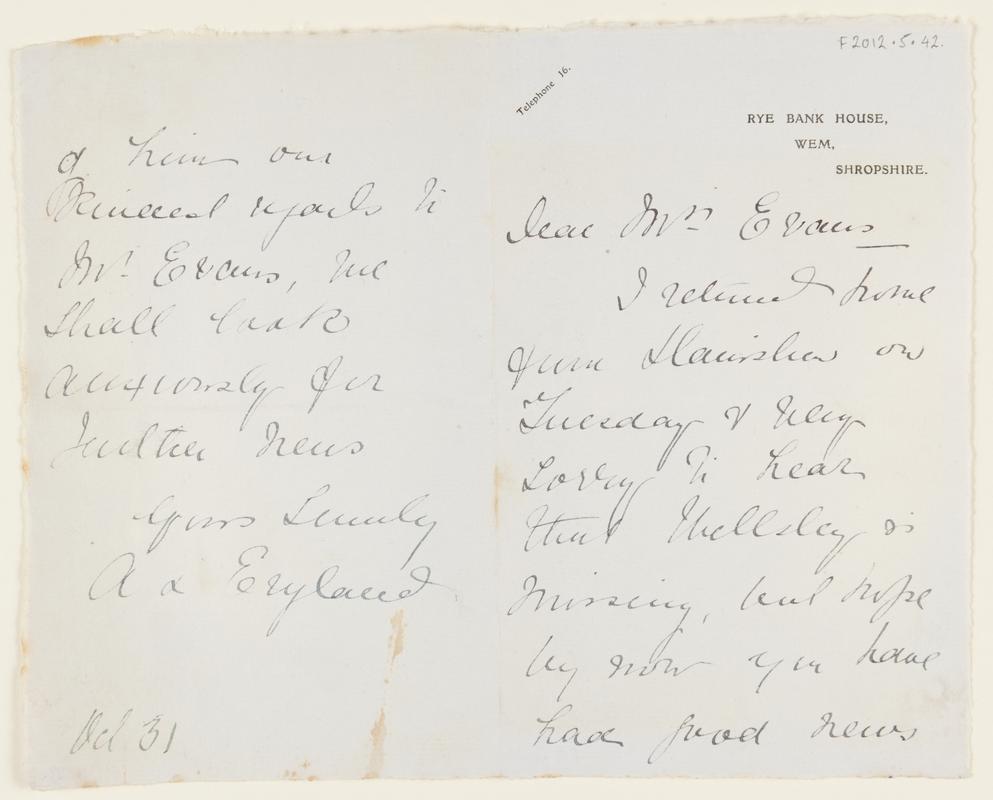 F2012.5.42.
Telephone 16.
RYE BANK HOUSE,
WEM,
SHROPSHIRE.
Dear Mrs Evans
I returned home
from on
Tuesday & very
sorry to hear
that Wellsley is
missing, but hope
by now you have
had good news
of him our
Kindest regards to
Mr. Evans, we
shall look
anxiously for
further news
Yours Sincerely
A England
Oct 31